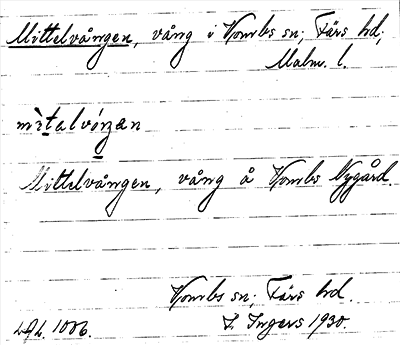 Mittelvången, vång i Vombs sn; Färs hd;
Malm. l.
mìtalvóngan
Mittelvången, vång å Vombs Nygård.
Vombs sn; Färs hd.
LAL. 1006. I. Ingers 1930.